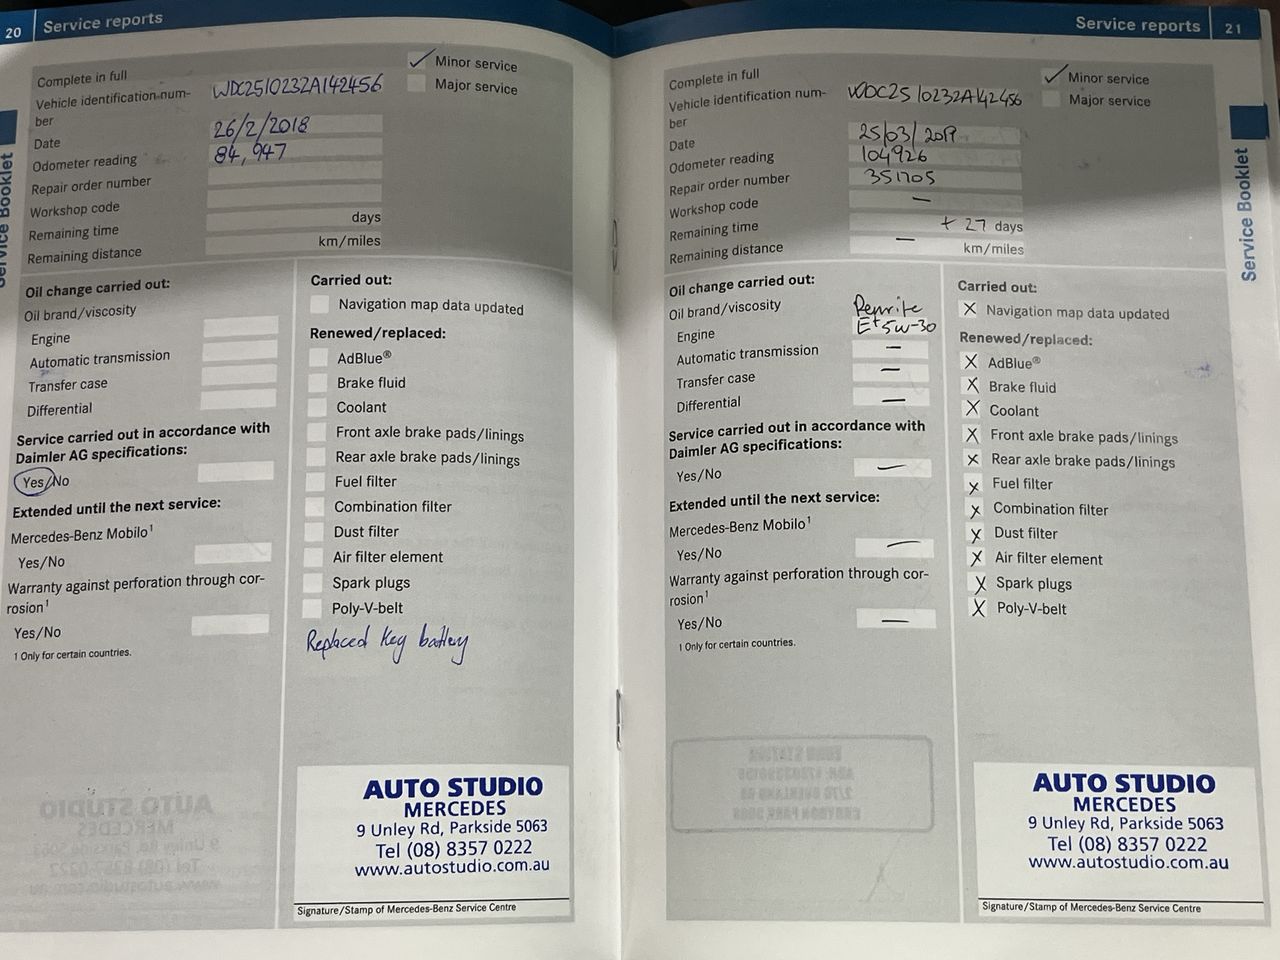 20 Service reports
Complete in full
✓ Minor service
Major service
Vehicle identification num-
ber
WDC2510232A142456
Date
26/2/2018
Odometer reading
84,947
Repair order number
Workshop code
Remaining time
days
Remaining distance
km/miles
Oil change carried out:
Oil brand/viscosity
Engine
Automatic transmission
Transfer case
Differential
Service carried out in accordance with
Daimler AG specifications:
Yes/No
Extended until the next service:
Mercedes-Benz Mobilo¹
Yes/No
Warranty against perforation through cor-
rosion¹
Yes/No
1 Only for certain countries.
Carried out:
Navigation map data updated
Renewed/replaced:
AdBlue®
Brake fluid
Coolant
Front axle brake pads/linings
Rear axle brake pads/linings
Fuel filter
Combination filter
Dust filter
Air filter element
Spark plugs
Poly-V-belt
Replaced key battery
AUTO STUDIO
MERCEDES
9 Unley Rd, Parkside 5063
Tel (08) 8357 0222
www.autostudio.com.au
Signature/Stamp of Mercedes-Benz Service Centre
Service Booklet
Service reports 21
Complete in full
✓ Minor service
Major service
Vehicle identification num-
ber
WDC2510232A142456
Date
25/03/2019
Odometer reading
104926
Repair order number
351705
Workshop code
—
Remaining time
+ 27 days
Remaining distance
— km/miles
Oil change carried out:
Oil brand/viscosity
Engine
E+ 5W-30
Automatic transmission —
Transfer case —
Differential —
Service carried out in accordance with
Daimler AG specifications:
Yes/No —
Extended until the next service:
Mercedes-Benz Mobilo¹
Yes/No —
Warranty against perforation through cor-
rosion¹
Yes/No —
1 Only for certain countries.
Carried out:
X Navigation map data updated
Renewed/replaced:
X AdBlue®
X Brake fluid
X Coolant
X Front axle brake pads/linings
X Rear axle brake pads/linings
X Fuel filter
X Combination filter
X Dust filter
X Air filter element
X Spark plugs
X Poly-V-belt
AUTO STUDIO
MERCEDES
9 Unley Rd, Parkside 5063
Tel (08) 8357 0222
www.autostudio.com.au
Signature/Stamp of Mercedes-Benz Service Centre
Service Booklet